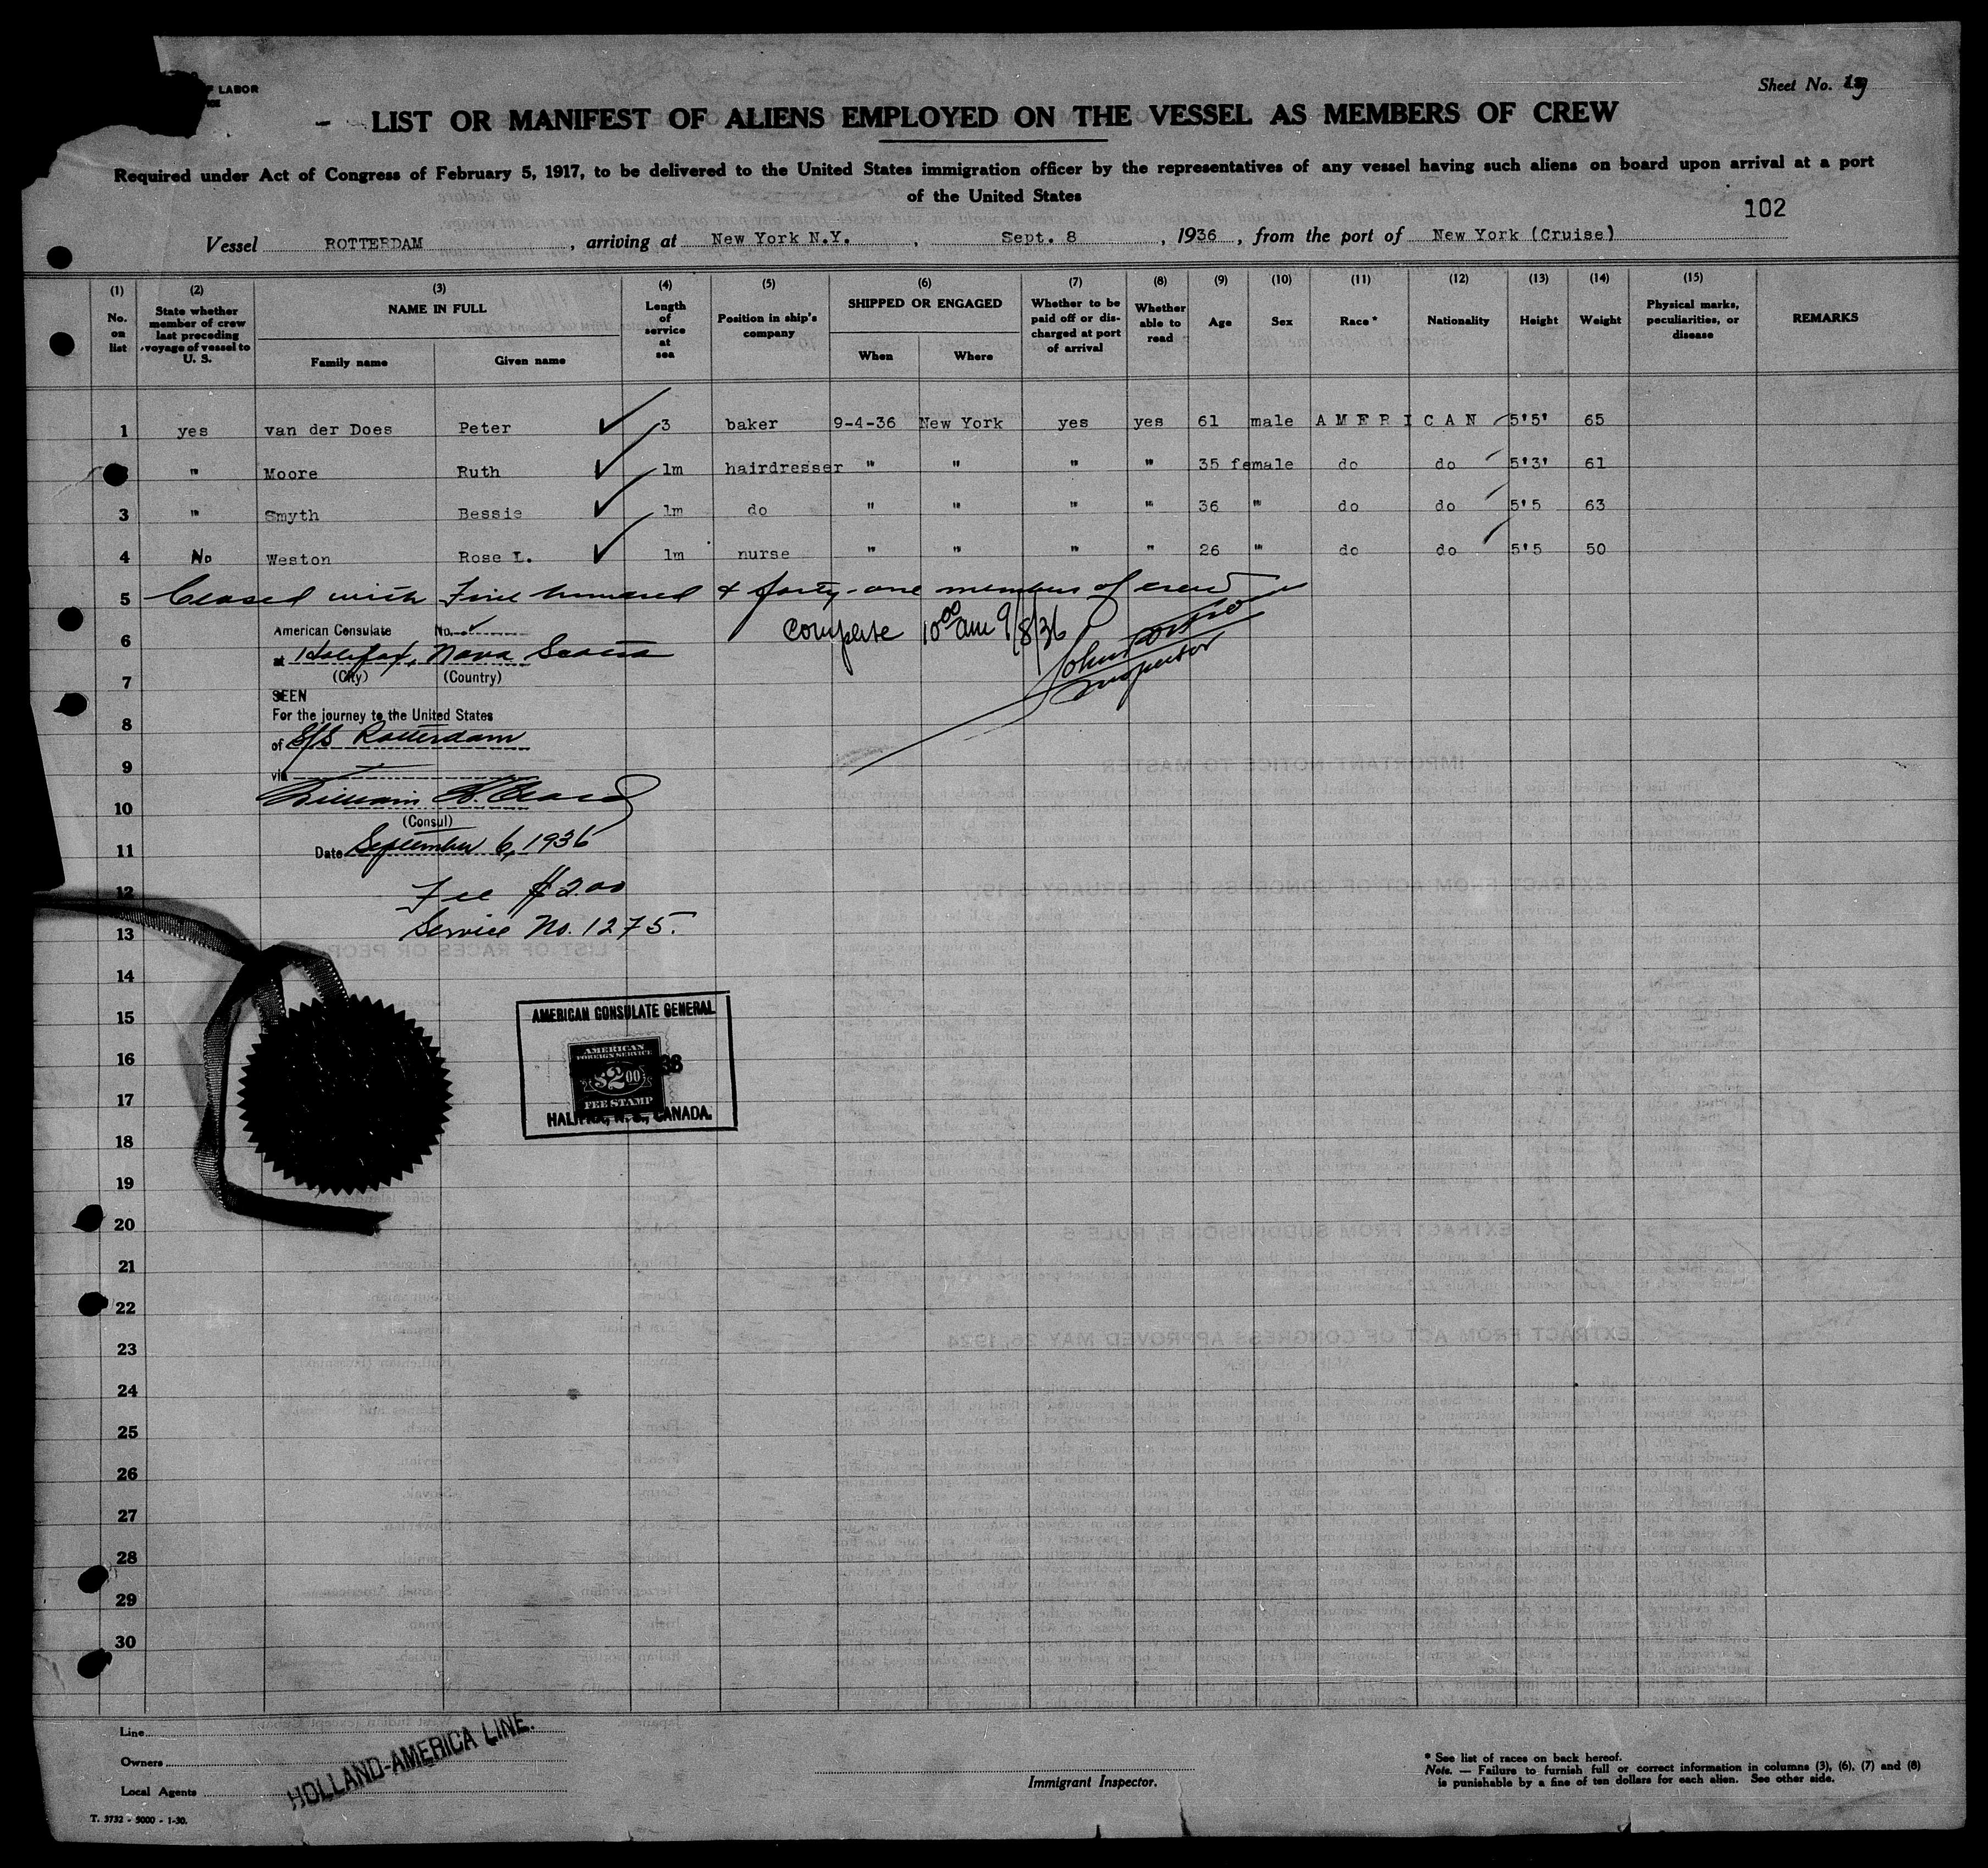 F LABOR
Sheet No. 19
LIST OR MANIFEST OF ALIENS EMPLOYED ON THE VESSEL AS MEMBERS OF CREW
Required under Act of Congress of February 5, 1917, to be delivered to the United States immigration officer by the representatives of any vessel having such aliens on board upon arrival at a port
of the United States
102
Vessel ROTTERDAM, arriving at New York N.Y., Sept. 8, 1936, from the port of New York (Cruise)
(1) No. on list
(2) State whether member of crew last preceding voyage of vessel to U. S.
(3) NAME IN FULL Family name Given name
(4) Length of service at sea
(5) Position in ship's company
(6) SHIPPED OR ENGAGED When Where
(7) Whether to be paid off or discharged at port of arrival
(8) Whether able to read
(9) Age
(10) Sex
(11) Race*
(12) Nationality
(13) Height
(14) Weight
(15) Physical marks, peculiarities, or disease
REMARKS
1 yes van der Does Peter 3 baker 9-4-36 New York yes yes 61 male AMERICAN 5'5' 65
" Moore Ruth 1m hairdresser " " " " 35 female do do 5'3' 61
3 " Smyth Bessie 1m do " " " " 36 " do do 5'5 63
4 No Weston Rose L. 1m nurse " " " " 26 " do do 5'5 50
5 Closed with Five hundred & forty-one members of crew
6 American Consulate No.
complete 10 00 am 9/8/36
at Halifax, Nova Scotia
John
Inspector
(City) (Country)
7
SEEN
For the journey to the United States
8
of S/S Rotterdam
9
via
William
10
(Consul)
Date September 6, 1936
11
12 Fee $2.00
13 Service No. 1275.
14
15 AMERICAN CONSULATE GENERAL
16 AMERICAN FOREIGN SERVICE
36
$2.00
17 FEE STAMP
HALIFAX, N. S., CANADA.
18
19
20
21
22
23
24
25
26
27
28
29
30
Line
Owners
Local Agents
HOLLAND-AMERICA LINE.
Immigrant Inspector.
* See list of races on back hereof.
Note. — Failure to furnish full or correct information in columns (3), (6), (7) and (8)
is punishable by a fine of ten dollars for each alien. See other side.
T. 3732 - 5000 - 1-30.